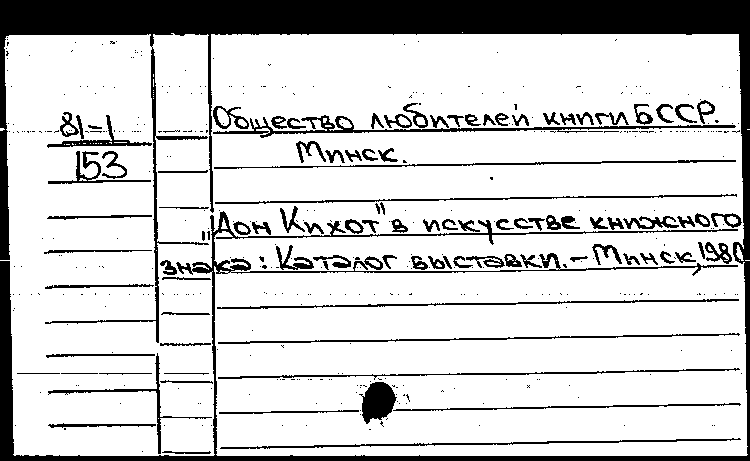 81-1
153
Общество любителей книги БССР.
Минск.
"Дон Кихот" в искусстве книжного
знака: Каталог выставки.-Минск, 1980